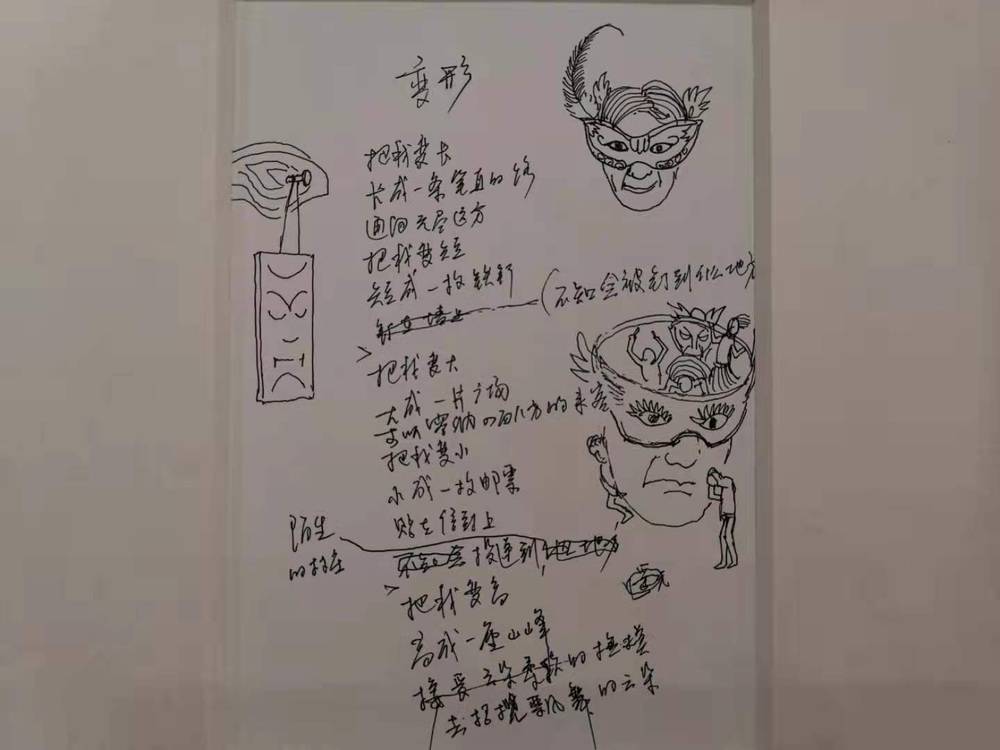 变形
把我变长
长成一条笔直的路
通向无尽远方
把我变短
短成一枚铁钉
钉在墙上
(不知会被钉到什么地方
把我变大
大成一片广场
可以容纳四面八方的来客
把我变小
小成一枚邮票
贴在信封上
陌生
的
不知会投递到
把我变高
高成一座山峰
接受云朵柔软的抚摸
去招揽飘舞的云朵